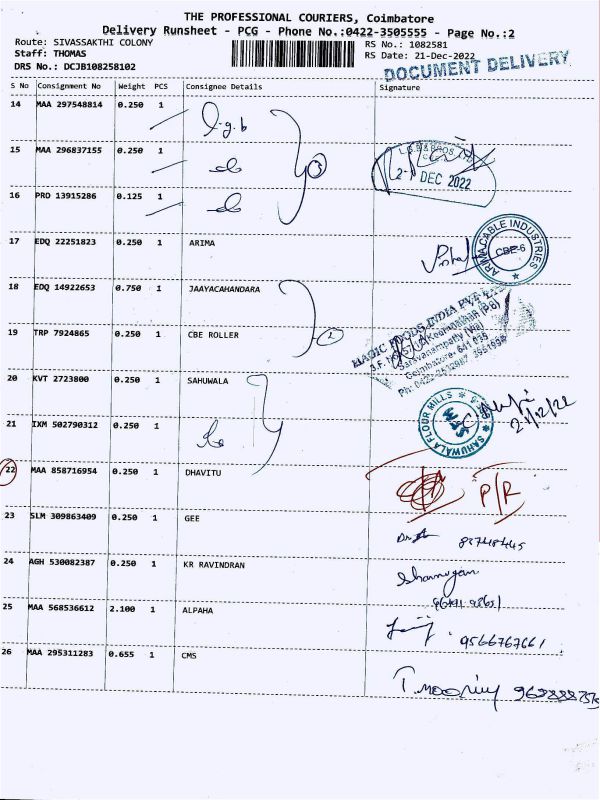 THE PROFESSIONAL COURIERS, Coimbatore
Delivery Runsheet - PCG - Phone No.:0422-3505555 - Page No.:2
Route: SIVASSAKTHI COLONY RS No.: 1082581
Staff: THOMAS RS Date: 21-Dec-2022
DRS No.: DCJB108258102 DOCUMENT DELIVERY
S No Consignment No Weight PCS Consignee Details Signature
14 MAA 297548814 0.250 1
15 MAA 296837155 0.250 1
DEC 2022
16 PRO 13915286 0.125 1
17 EDQ 22251823 0.250 1 ARIMA
ARIMA CABLE INDUSTRIES
CBE-6
18 EDQ 14922653 0.750 1 JAAYACAHANDARA
MAGIC FOODS INDIA PVT LTD
19 TRP 7924865 0.250 1 CBE ROLLER
20 KVT 2723800 0.250 1 SAHUWALA
SAHUWALA FLOUR MILLS
21/12/22
21 IXM 502790312 0.250 1
22 MAA 858716954 0.250 1 DHAVITU P/R
23 SLM 309863409 0.250 1 GEE
24 AGH 530082387 0.250 1 KR RAVINDRAN
25 MAA 568536612 2.100 1 ALPAHA
9566767661
26 MAA 295311283 0.655 1 CMS